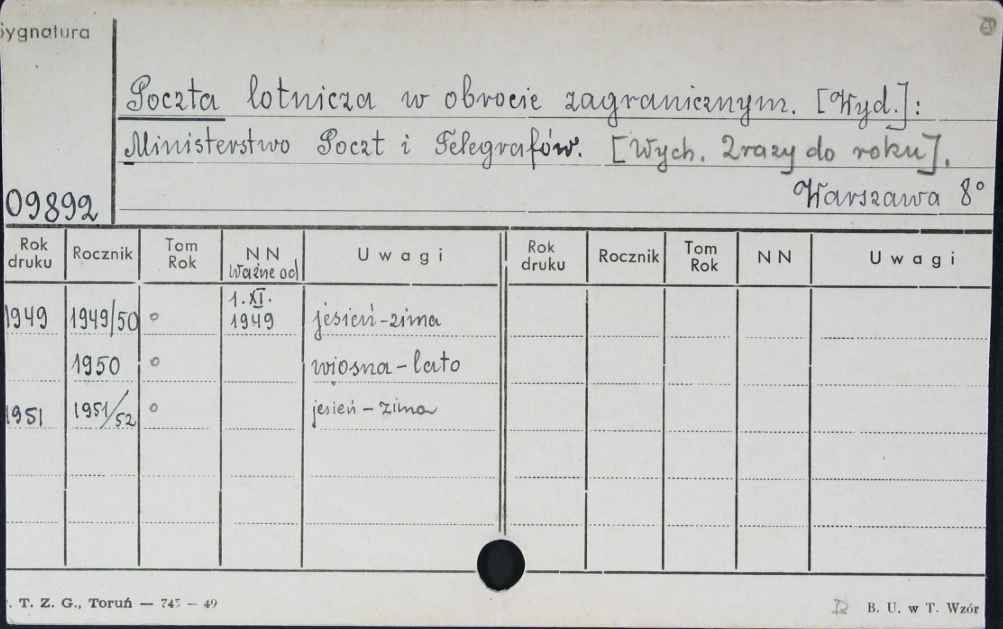 Sygnatura
Poczta lotnicza w obrocie zagranicznym. [Wyd.]:
Ministerstwo Poczt i Telegrafów. [Wych. 2 razy do roku].
09892 Warszawa 8°
Rok druku Rocznik Tom Rok NN Ważne od Uwagi Rok druku Rocznik Tom Rok NN Uwagi
1949 1949/50 ° 1.XI. 1949 jesień-zima
1950 ° wiosna-lato
1951 1951/52 ° jesień-zima
. T. Z. G., Toruń — 745 — 49 B. U. w T. Wzór